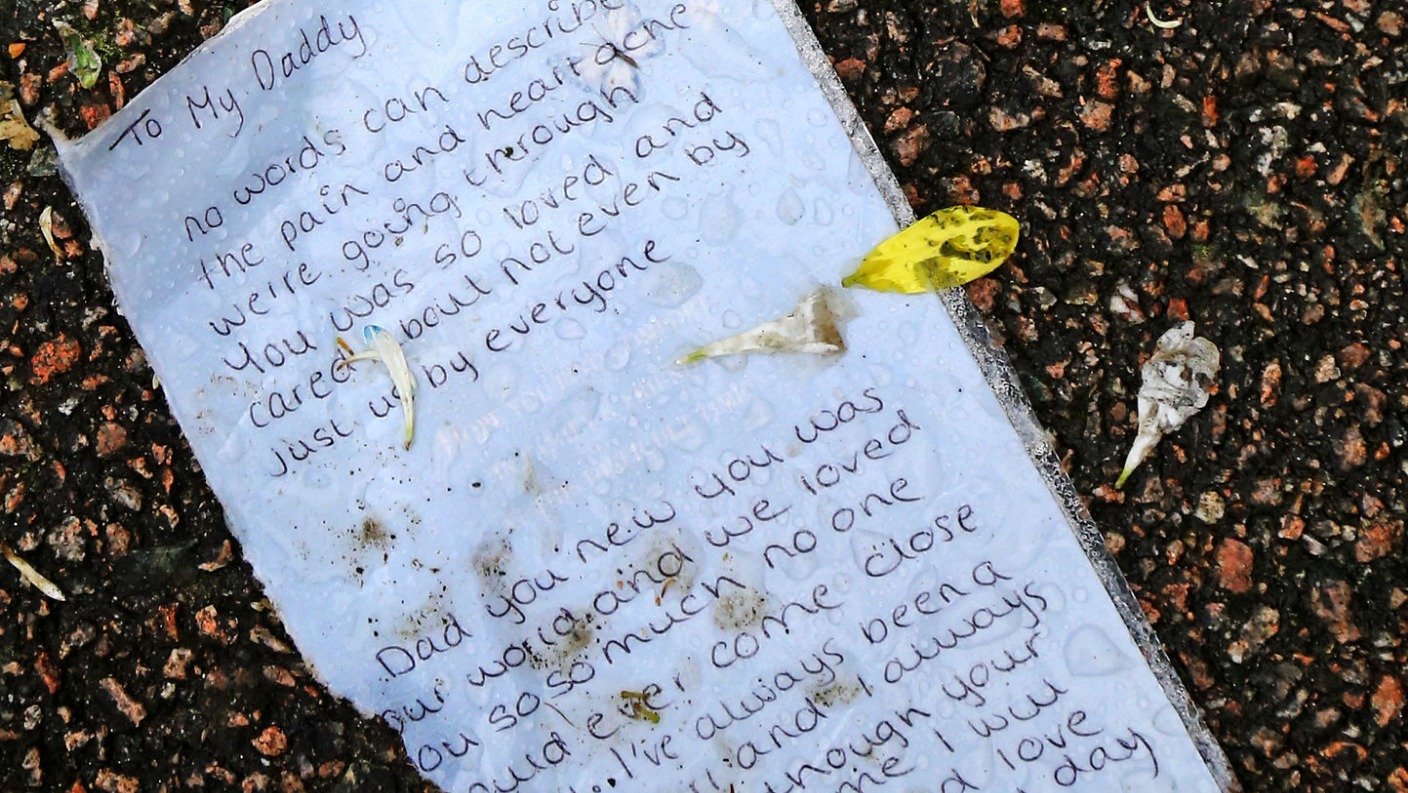 To My Daddy
no words can describe
the pain and heartache
we're going through
you was so loved and
cared bout not even by
just us by everyone
Dad you new you was
our world and we loved
you so so much no one
could ever come close
I've always been a
and I always
though your
me I will
love
day